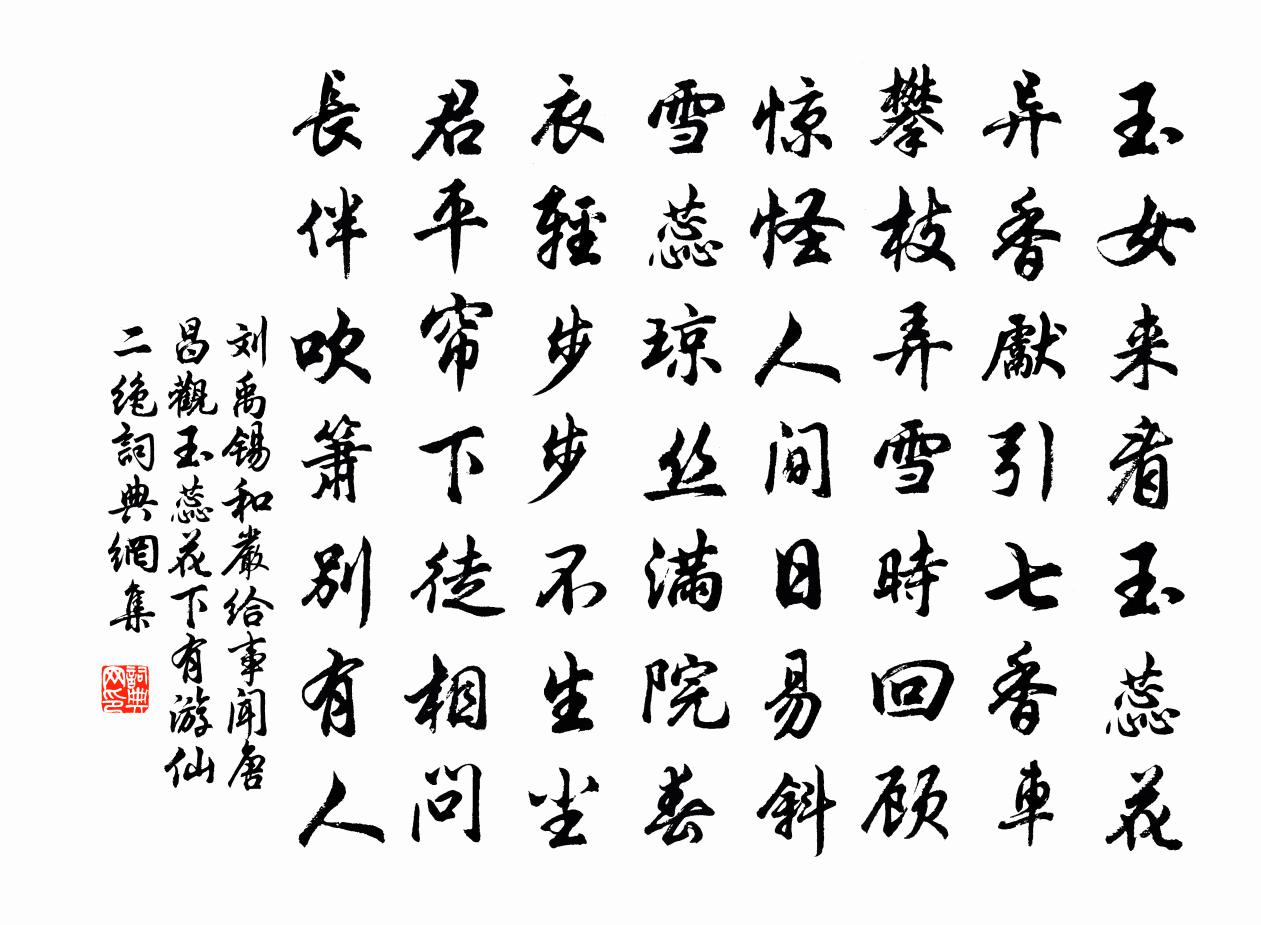 玉女来看玉蕊花
异香獻引七香車
攀枝弄雪時回顾
惊怪人间日易斜
雪蕊琼丝满院春
衣輕步步不生尘
君平帘下徒相问
長伴吹箫别有人
刘禹锡和嚴给事闻唐
昌觀玉蕊花下有游仙
二绝詞典網集
詞典网印